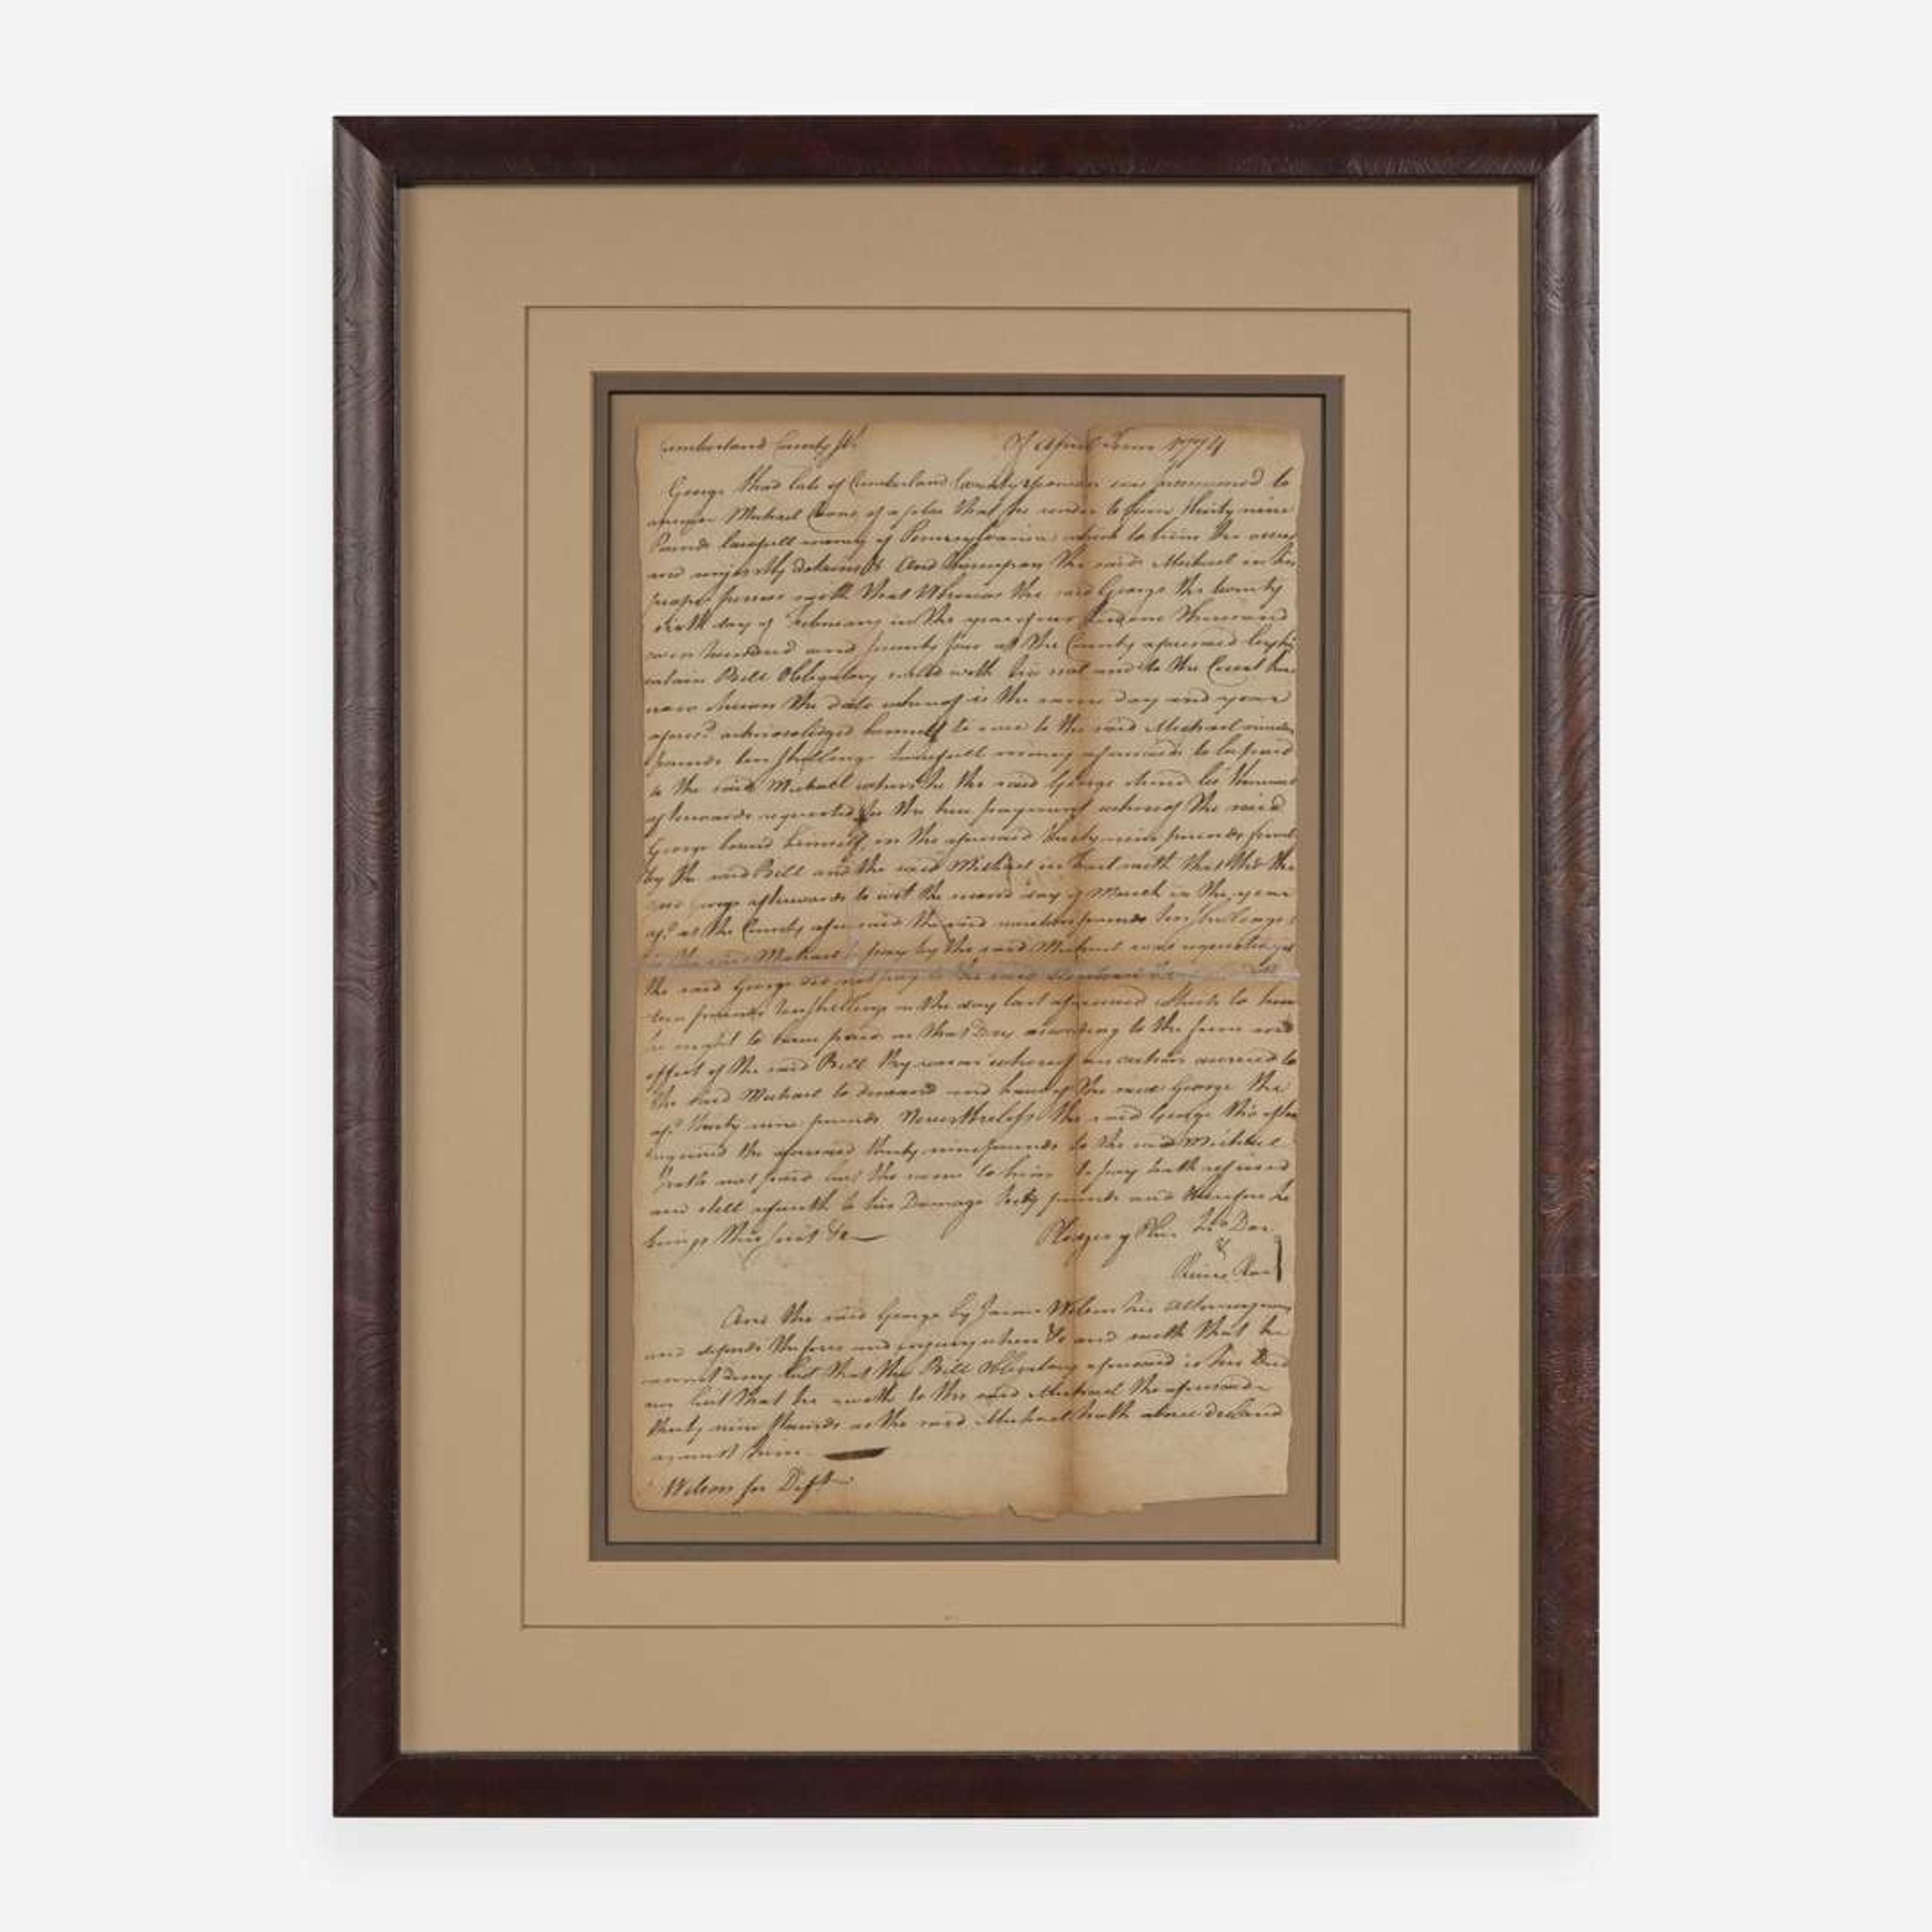 Cumberland County Ss. Of April Term 1774
George late of Cumberland County Yeoman was summoned to
answer Michael of a plea that he render to him thirty nine
Pounds lawfull money of Pennsylvania which to him he owes
and unjustly detains &c And thereupon the said Michael in his
proper person saith that Whereas the said George the twenty
sixth day of February in the year of our Lord one thousand
seven hundred and seventy four at the County aforesaid by his
certain Bill Obligatory sealed with his seal and to the Court here
now shewn the date whereof is the same day and year
afores.d acknowledged himself to owe to the said Michael nineteen
pounds ten shillings lawfull money aforesaid to be paid
to the said Michael when the said George should be thereunto
afterwards requested for the true payment whereof the said
George bound himself in the aforesaid thirty nine pounds
by the said Bill and the said Michael in Fact saith that tho the
said George afterwards to wit the second day of March in the year
af.d at the County aforesaid the said nineteen pounds ten shillings
to the said Michael to pay by the said Michael was requested yet
the said George did not pay to the said
teen pounds ten shillings on the day last aforesaid which to him
he ought to have paid on that Day according to the form and
effect of the said Bill by reason whereof an action accrued to
the said Michael to demand and have of the said George the
af.d thirty nine pounds Nevertheless the said George tho often
required the aforesaid thirty nine pounds to the said Michael
hath not paid but the same to him to pay hath refused
and still refuseth to his Damage pounds and therefore he
brings this suit &c
Pledges of Jno Doe
&
Rich.d Roe
And the said George by James Wilson his attorney comes
and defends the force and injury when &c and saith that he
cannot deny but that the Bill Obligatory aforesaid is his Deed
nor but that he oweth to the said Michael the aforesaid
thirty nine Pounds as the said Michael hath above declared
against him
Wilson for Deft